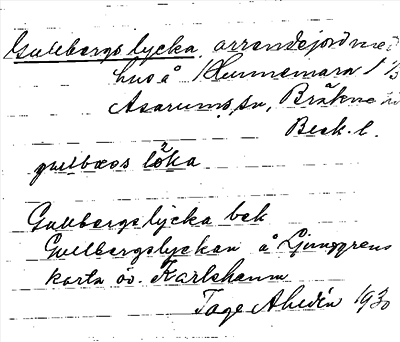 Gullbergslycka, arrendejord med
hus å Hunnemara 1
Asarums sn, Bräkne
Blek. l.
gulbœos löka
Gullbergslycka bek
Gullbergslyckan å Ljunggrens
karta öv. Karlshamn
Tage Ahldén 1930